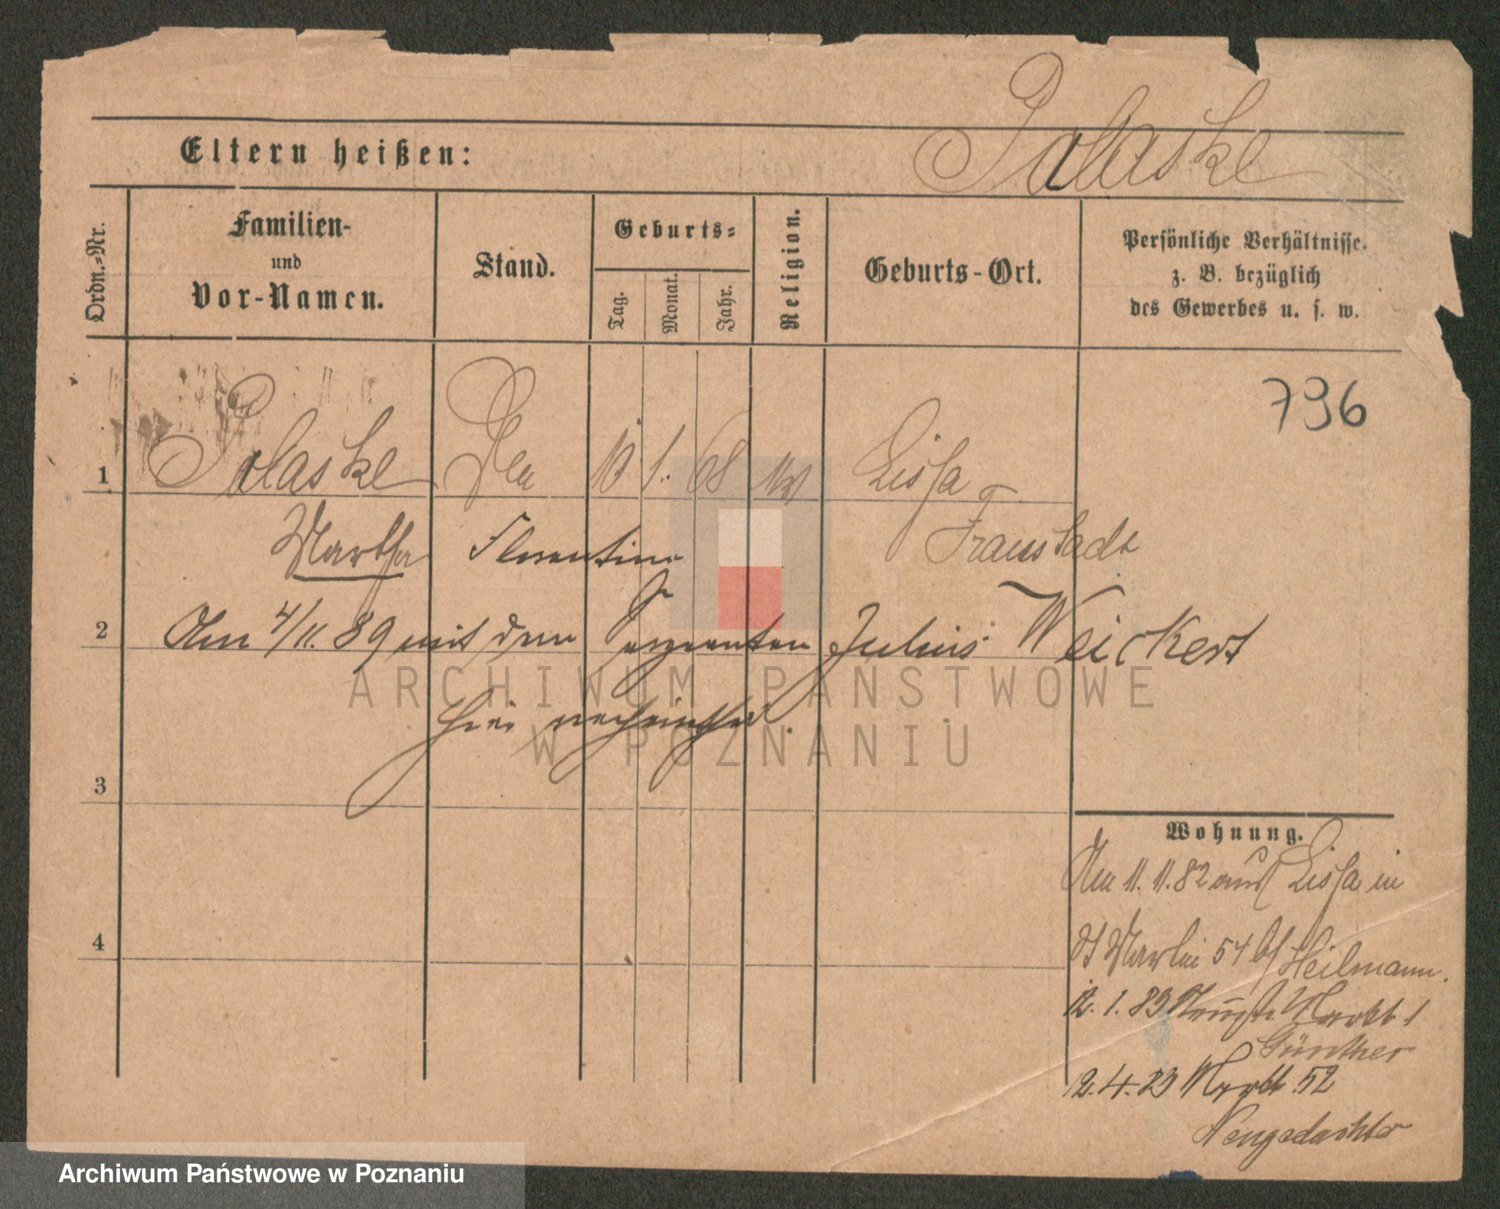 Polaske
Eltern heißen:
Ordn.-Nr.
Familien-
und
Vor-Namen.
Stand.
Geburts-
Tag. Monat. Jahr.
Religion.
Geburts-Ort.
Persönliche Verhältnisse.
z. B. bezüglich
des Gewerbes u. s. w.
796
1 Polaske 1. 68 Lissa
Martha Florentine Fraustadt
2 Am 4/11. 89 mit dem Sergeanten Julius Weickert
hier verheirathet.
3
4
Wohnung.
Am 11. 11. 82 aus Lissa in
54 Heilmann.
12. 1. 83 Markt 1
Günther
2. 4. 83 Markt 52
Neugedachter
ARCHIWUM PAŃSTWOWE
W POZNANIU
Archiwum Państwowe w Poznaniu